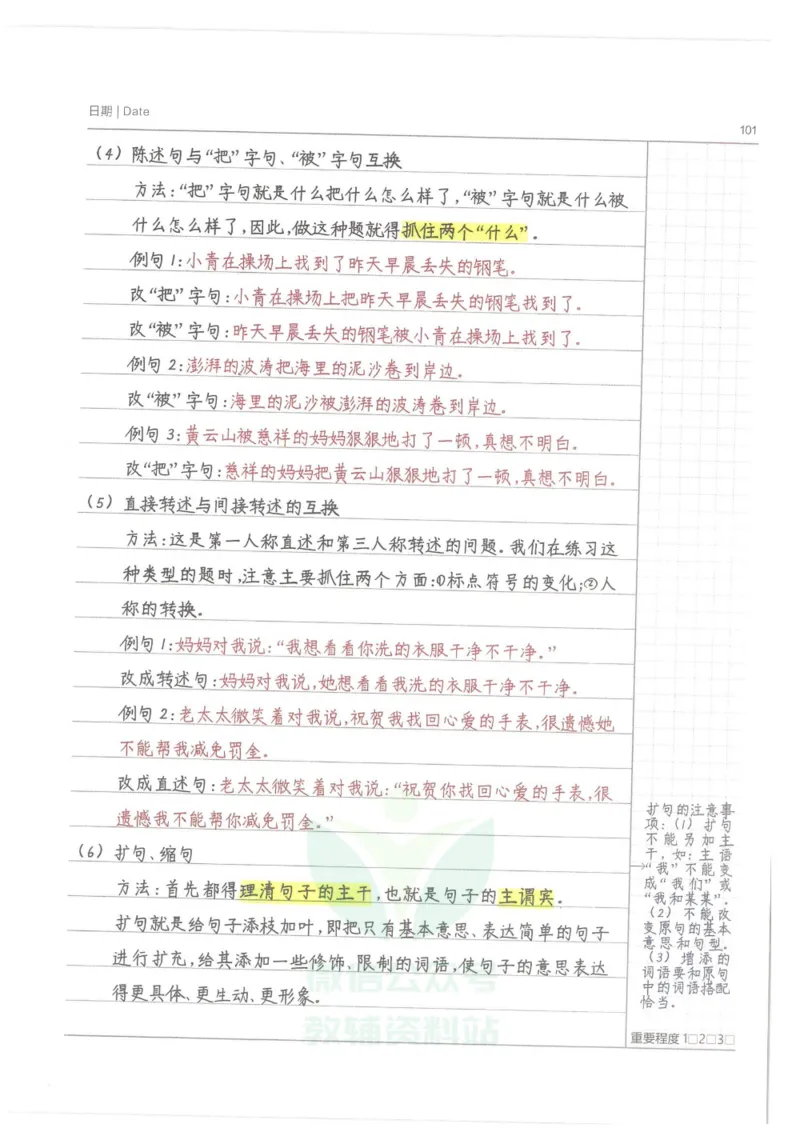 日期 | Date
101
(4) 陈述句与“把”字句、“被”字句互换
方法:“把”字句就是什么把什么怎么样了,“被”字句就是什么被
什么怎么样了,因此,做这种题就得抓住两个“什么”.
例句1:小青在操场上找到了昨天早晨丢失的钢笔.
改“把”字句:小青在操场上把昨天早晨丢失的钢笔找到了.
改“被”字句:昨天早晨丢失的钢笔被小青在操场上找到了.
例句2:澎湃的波涛把海里的泥沙卷到岸边.
改“被”字句:海里的泥沙被澎湃的波涛卷到岸边.
例句3:黄云山被慈祥的妈妈狠狠地打了一顿,真想不明白.
改“把”字句:慈祥的妈妈把黄云山狠狠地打了一顿,真想不明白.
(5) 直接转述与间接转述的互换
方法:这是第一人称直述和第三人称转述的问题.我们在练习这
种类型的题时,注意主要抓住两个方面:①标点符号的变化;②人
称的转换.
例句1:妈妈对我说:“我想看看你洗的衣服干净不干净.”
改成转述句:妈妈对我说,她想看看我洗的衣服干净不干净.
例句2:老太太微笑着对我说,祝贺我找回心爱的手表,很遗憾她
不能帮我减免罚金.
改成直述句:老太太微笑着对我说:“祝贺你找回心爱的手表,很
遗憾我不能帮你减免罚金.”
(6) 扩句、缩句
方法:首先都得理清句子的主干,也就是句子的主谓宾.
扩句就是给句子添枝加叶,即把只有基本意思、表达简单的句子
进行扩充,给其添加一些修饰、限制的词语,使句子的意思表达
得更具体、更生动、更形象.
扩句的注意事
项:(1) 扩句
不能另加主
干,如:主语
“我”不能变
成“我们”或
“我和某某”.
(2) 不能改
变原句的基本
意思和句型.
(3) 增添的
词语要和原句
中的词语搭配
恰当.
微信公众号
教辅资料站
重要程度 1□2□3□